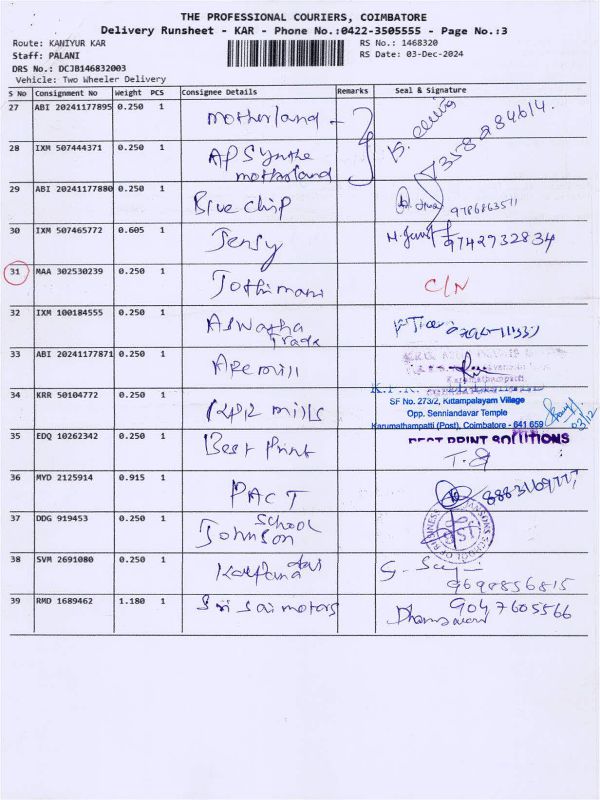 THE PROFESSIONAL COURIERS, COIMBATORE
Delivery Runsheet - KAR - Phone No.:0422-3505555 - Page No.:3
Route: KANIYUR KAR
RS No.: 1468320
Staff: PALANI
RS Date: 03-Dec-2024
DRS No.: DCJB146832003
Vehicle: Two Wheeler Delivery
S No Consignment No Weight PCS Consignee Details Remarks Seal & Signature
27 ABI 20241177895 0.250 1 Motherland
28 IXM 507444371 0.250 1 AP Synthe
motherland 7358284614.
29 ABI 20241177880 0.250 1 Blue chip 9786863511
30 IXM 507465772 0.605 1 Jersy 9742732834
31 MAA 302530239 0.250 1 Jothimani C/N
32 IXM 100184555 0.250 1 Aswatha
Trade
33 ABI 20241177871 0.250 1 ARC mill
34 KRR 50104772 0.250 1 KPR mills
SF No. 273/2, Kittampalayam Village
Opp. Senniandavar Temple
Karumathampatti (Post), Coimbatore - 641 659 03/12
35 EDQ 10262342 0.250 1 Best Print BEST PRINT SOLUTIONS
36 MYD 2125914 0.915 1 PACT
37 DDG 919453 0.250 1 Johnson school
38 SVM 2691080 0.250 1 Kalpana devi 9698856815
39 RMD 1689462 1.180 1 Sri Sai motors 9047605566